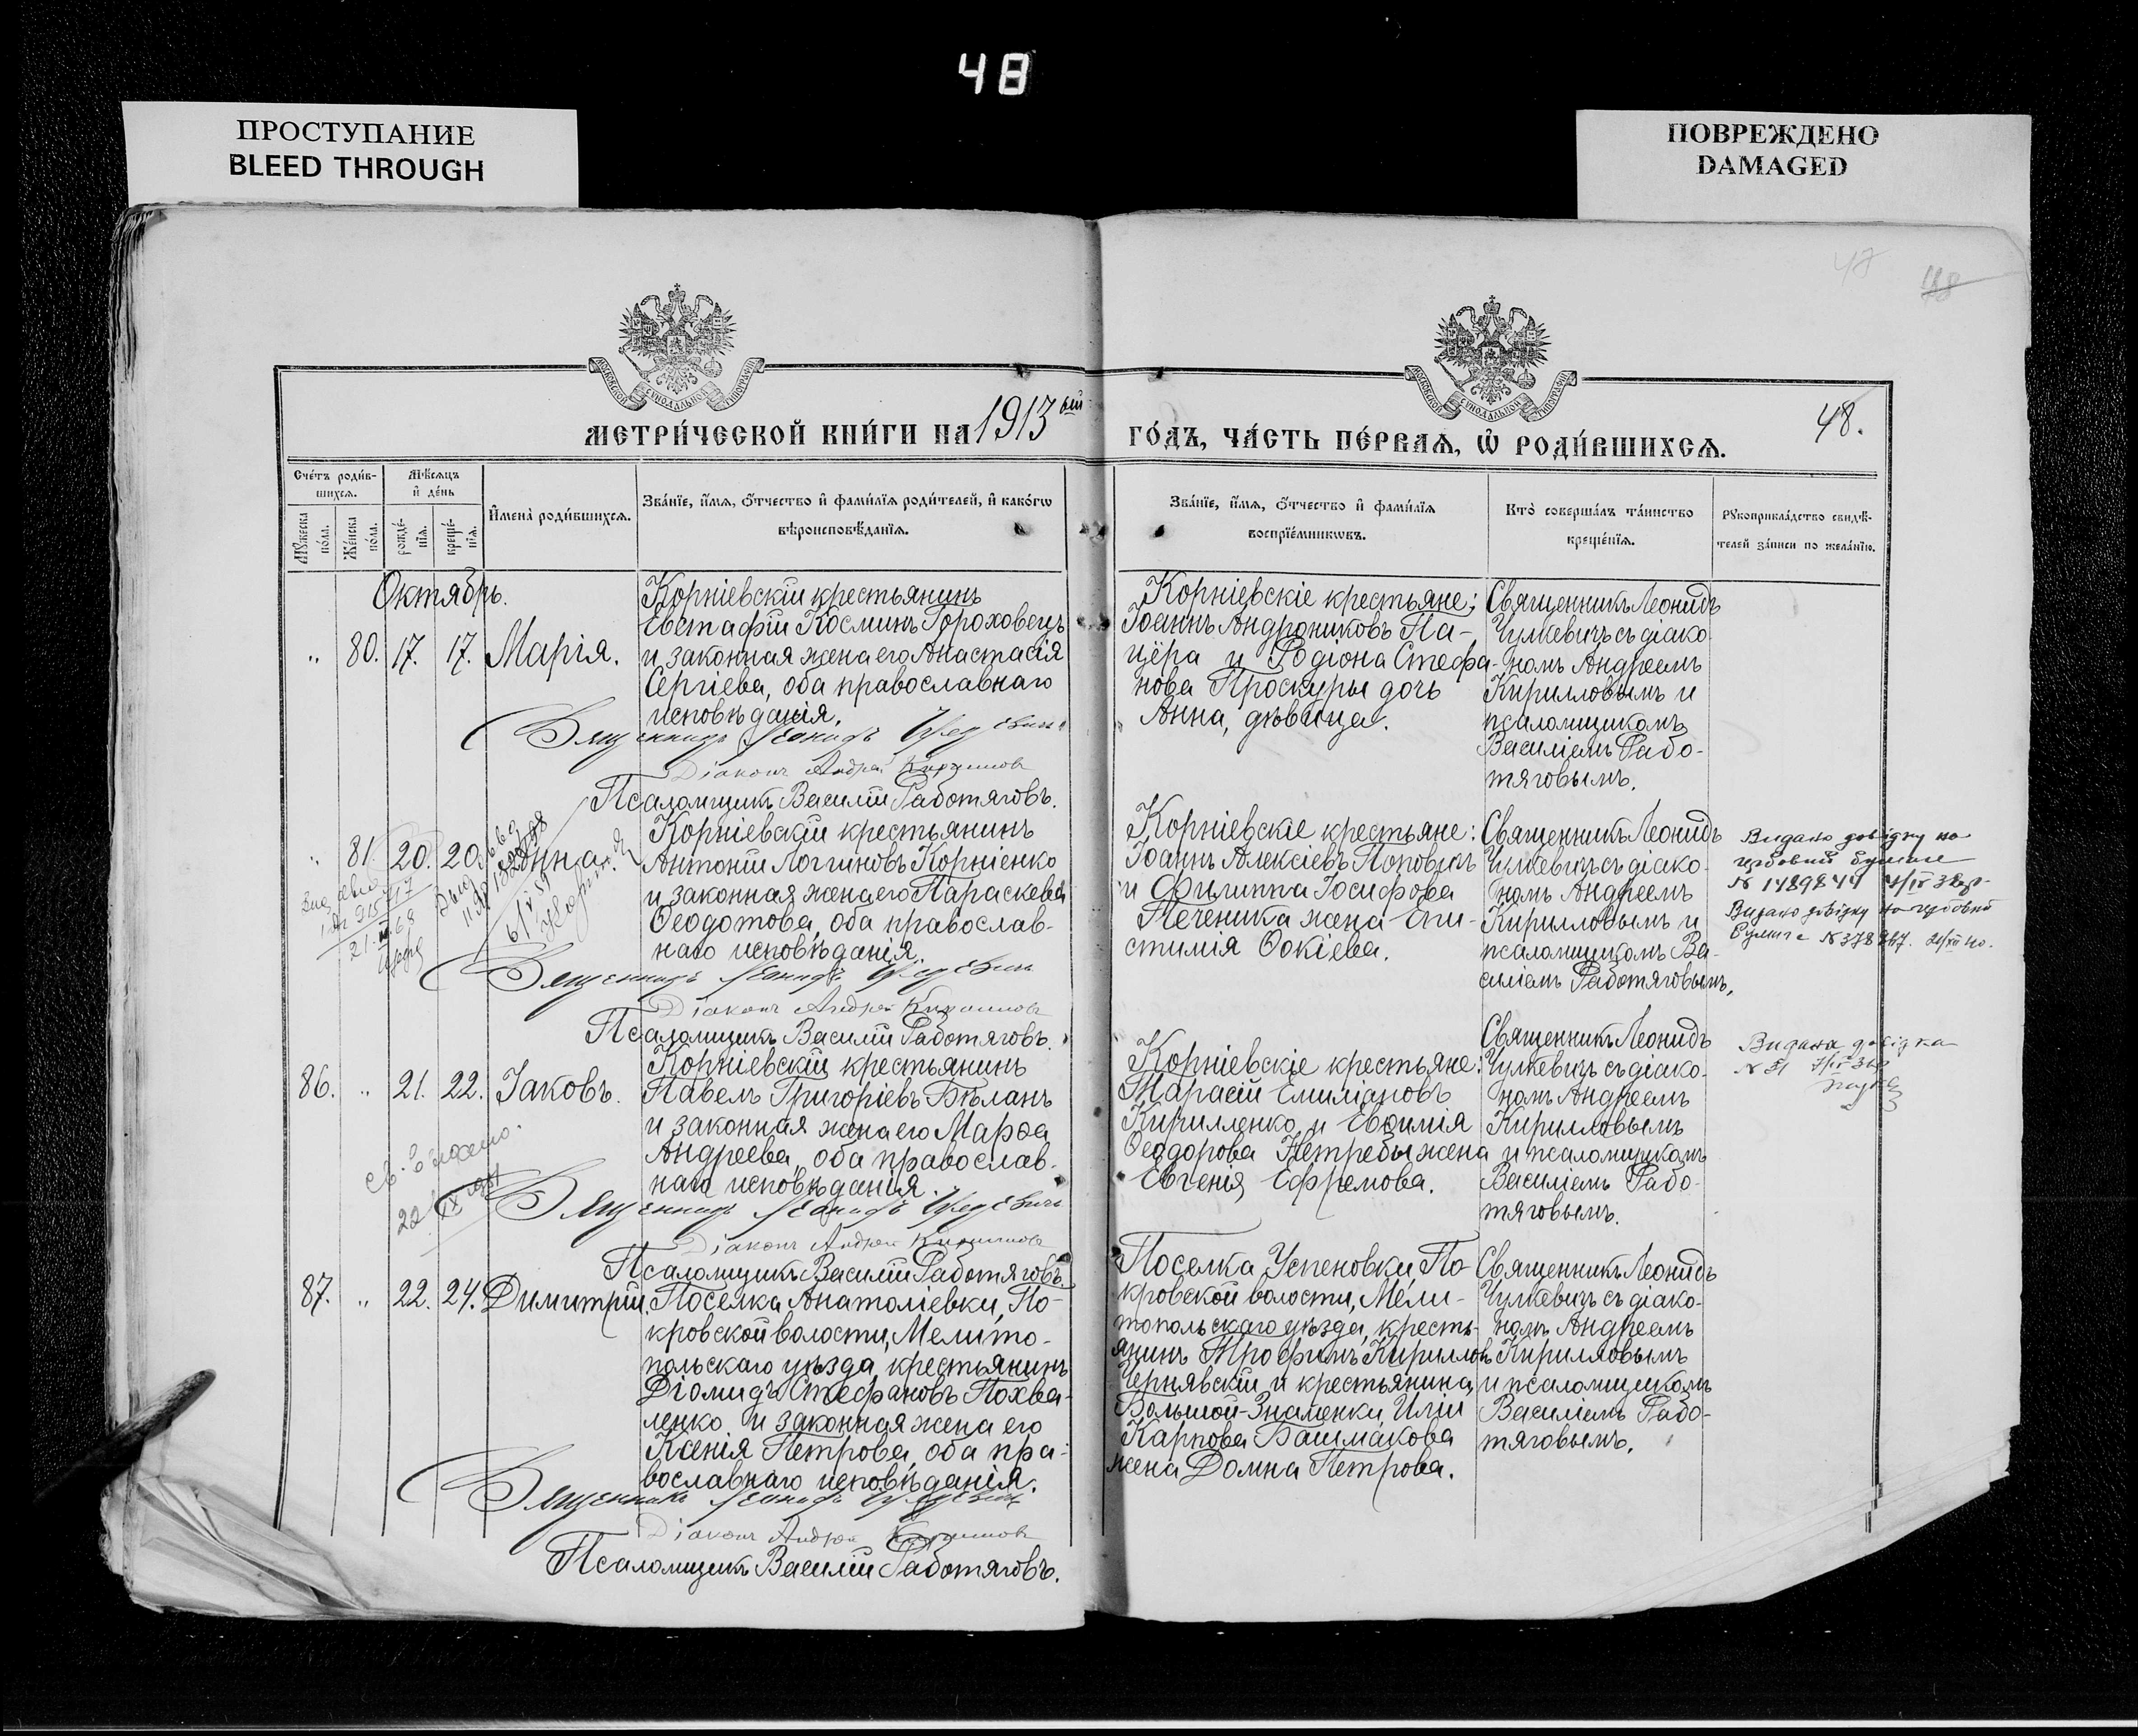 48
ПРОСТУПАНИЕ
BLEED THROUGH
ПОВРЕЖДЕНО
DAMAGED
47
48
МЕТРИ́ЧЕСКОЙ КНИ́ГИ НА 1913 ый
ГО́ДЪ, ЧА́СТЬ ПЕ́РВАѦ, Ѡ҆ РОДИ́ВШИХСѦ.
48.
Сче́тъ роди́в-
шихсѧ.
Мѣ́сѧцъ
и҆ де́нь
Мꙋ́жеска
по́ла.
Же́нска
по́ла.
рожде́-
нїѧ.
креще́-
нїѧ.
И҆мена̀ роди́вшихсѧ.
Зва́нїе, и҆́мѧ, ѻ҆́тчество и҆ фами́лїѧ роди́телей, и҆ како́гѡ
вѣроисповѣ́данїѧ.
Зва́нїе, и҆́мѧ, ѻ҆́тчество и҆ фами́лїѧ
воспрїе́мникѡвъ.
Кто̀ соверша́лъ та́инство
креще́нїѧ.
Рꙋкоприкла́дство свидѣ́-
телей за́писи по жела́нїю.
Октябрь.
" 80. 17. 17. Марія.
Корніевскій крестьянинъ
Евстафій Косминъ Гороховецъ
и законная жена его Анастасія
Сергіева, оба православнаго
исповѣданія.
Священникъ Леонидъ Чулкевичъ
Діаконъ Андрей Кирилловъ
Псаломщикъ Василій Работяговъ.
Корніевскіе крестьяне:
Іоаннъ Андрониковъ Па-
цёра и Родіона Стефа-
нова Проскуры дочь
Анна, дѣвица.
Священникъ Леонидъ
Чулкевичъ съ діако-
номъ Андреемъ
Кирилловымъ и
псаломщикомъ
Василіемъ Рабо-
тяговымъ.
" 81. 20. 20. Анна.
Корніевскій крестьянинъ
Антоній Логиновъ Корніенко
и законная жена его Параскева
Ѳеодотова, оба православ-
наго исповѣданія.
Священникъ Леонидъ Чулкевичъ
Діаконъ Андрей Кирилловъ
Псаломщикъ Василій Работяговъ.
Корніевскіе крестьяне:
Іоаннъ Алексіевъ Поповичъ
и Филиппа Іосифова
Печеника жена Епи-
стимія Ѳокіева.
Священникъ Леонидъ
Чулкевичъ съ діако-
номъ Андреемъ
Кирилловымъ и
псаломщикомъ Ва-
силіемъ Работяговымъ.
Видано довідку на
гербовий бумаге
№ 1489844
Видано довідку на гербовой
бумаге № 378267.
86. " 21. 22. Іаковъ.
Корніевскій крестьянинъ
Павелъ Григоріевъ Бѣланъ
и законная жена его Марѳа
Андреева, оба православ-
наго исповѣданія.
Священникъ Леонидъ Чулкевичъ
Діаконъ Андрей Кирилловъ
Псаломщикъ Василій Работяговъ.
Корніевскіе крестьяне:
Тарасій Емиліановъ
Кирилленко и Евѳимія
Ѳеодорова Нетребы жена
Евгенія Ефремова.
Священникъ Леонидъ
Чулкевичъ съ діако-
номъ Андреемъ
Кирилловымъ
и псаломщикомъ
Василіемъ Рабо-
тяговымъ.
Видана довідка
№ 31
87. " 22. 24. Димитрій.
Поселка Анатоліевки, По-
кровской волости, Мелито-
польскаго уѣзда, крестьянинъ
Діомидъ Стефановъ Похва-
ленко и законная жена его
Ксенія Петрова, оба пра-
вославнаго исповѣданія.
Священникъ Леонидъ Чулкевичъ
Діаконъ Андрей Кирилловъ
Псаломщикъ Василій Работяговъ.
Поселка Успеновки, По-
кровской волости, Мели-
топольскаго уѣзда, кресть-
янинъ Трофимъ Кирилловъ
Чернявскій и крестьянина
Большой-Знаменки, Иліи
Карпова Башмакова
жена Домна Петрова.
Священникъ Леонидъ
Чулкевичъ съ діако-
номъ Андреемъ
Кирилловымъ
и псаломщикомъ
Василіемъ Рабо-
тяговымъ.